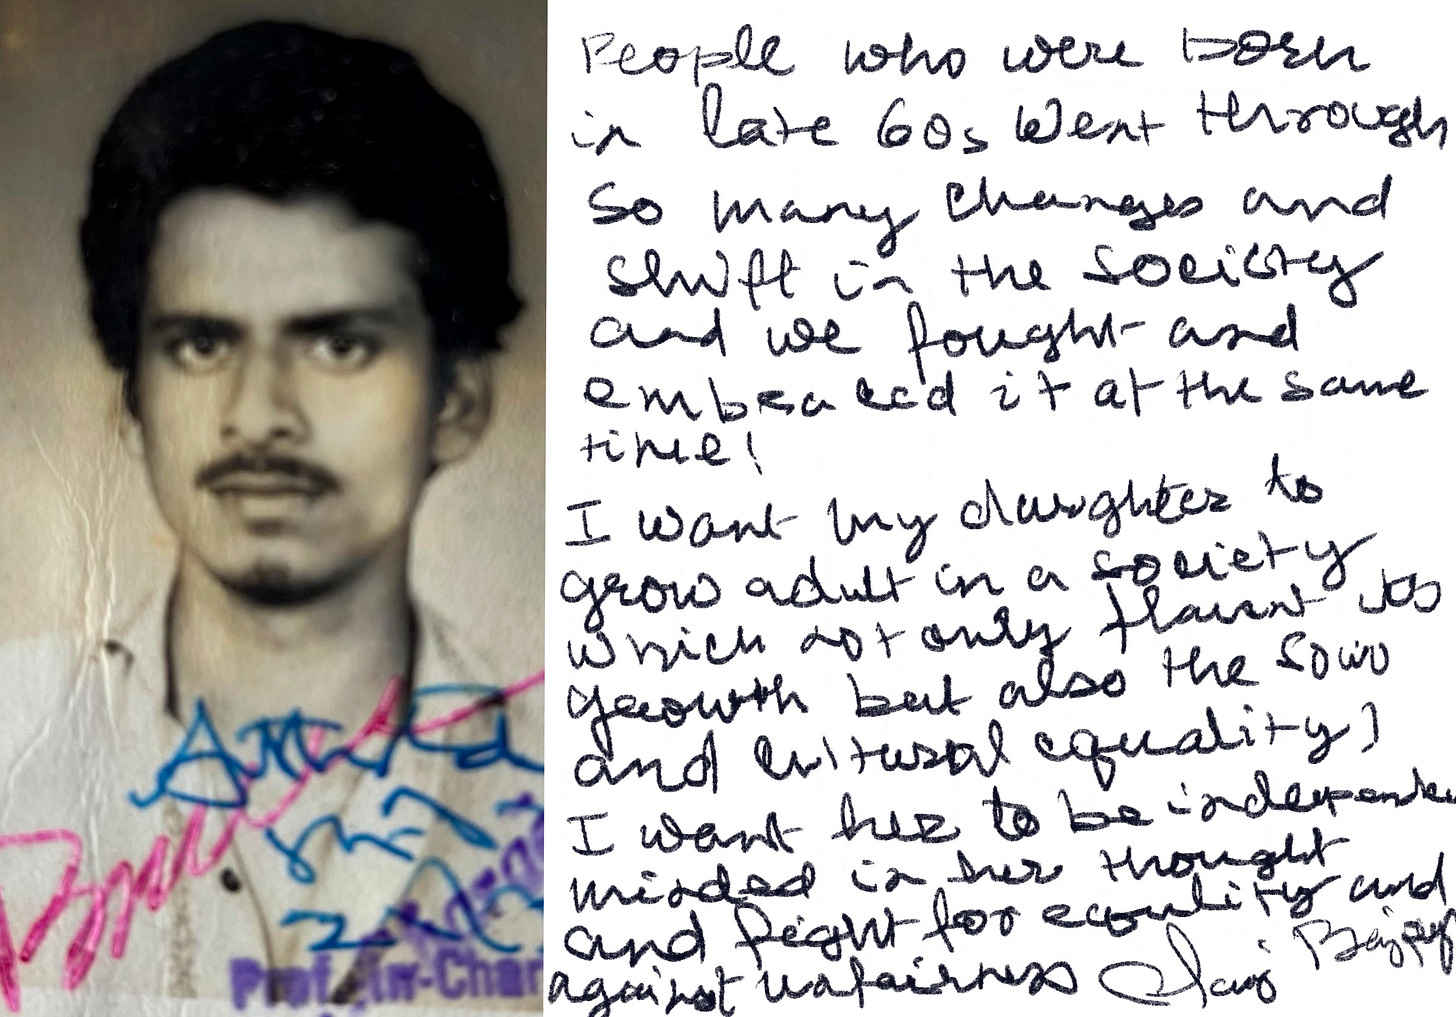 Attested
Prof.-In-Char
People who were born
in late 60s Went through
so many changes and
shift in the society
and we fought and
embraced it at the same
time!
I want my daughter to
grow adult in a society
which not only flaunt its
growth but also the
and cultural equality)
I want her to be independent
minded in her thought
and fight for equality and
against unfairness